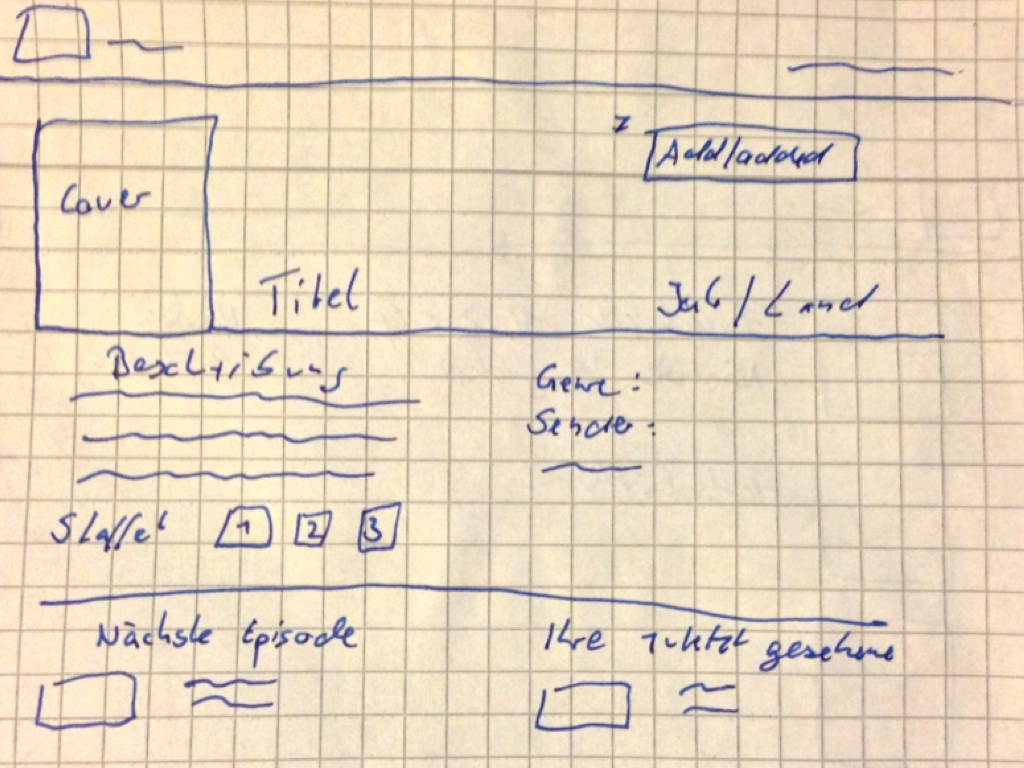 Cover
Add/added
Titel
Jahr / Land
Beschreibung
Genre :
Sender :
Staffel 1 2 3
Nächste Episode
Ihre zuletzt gesehene